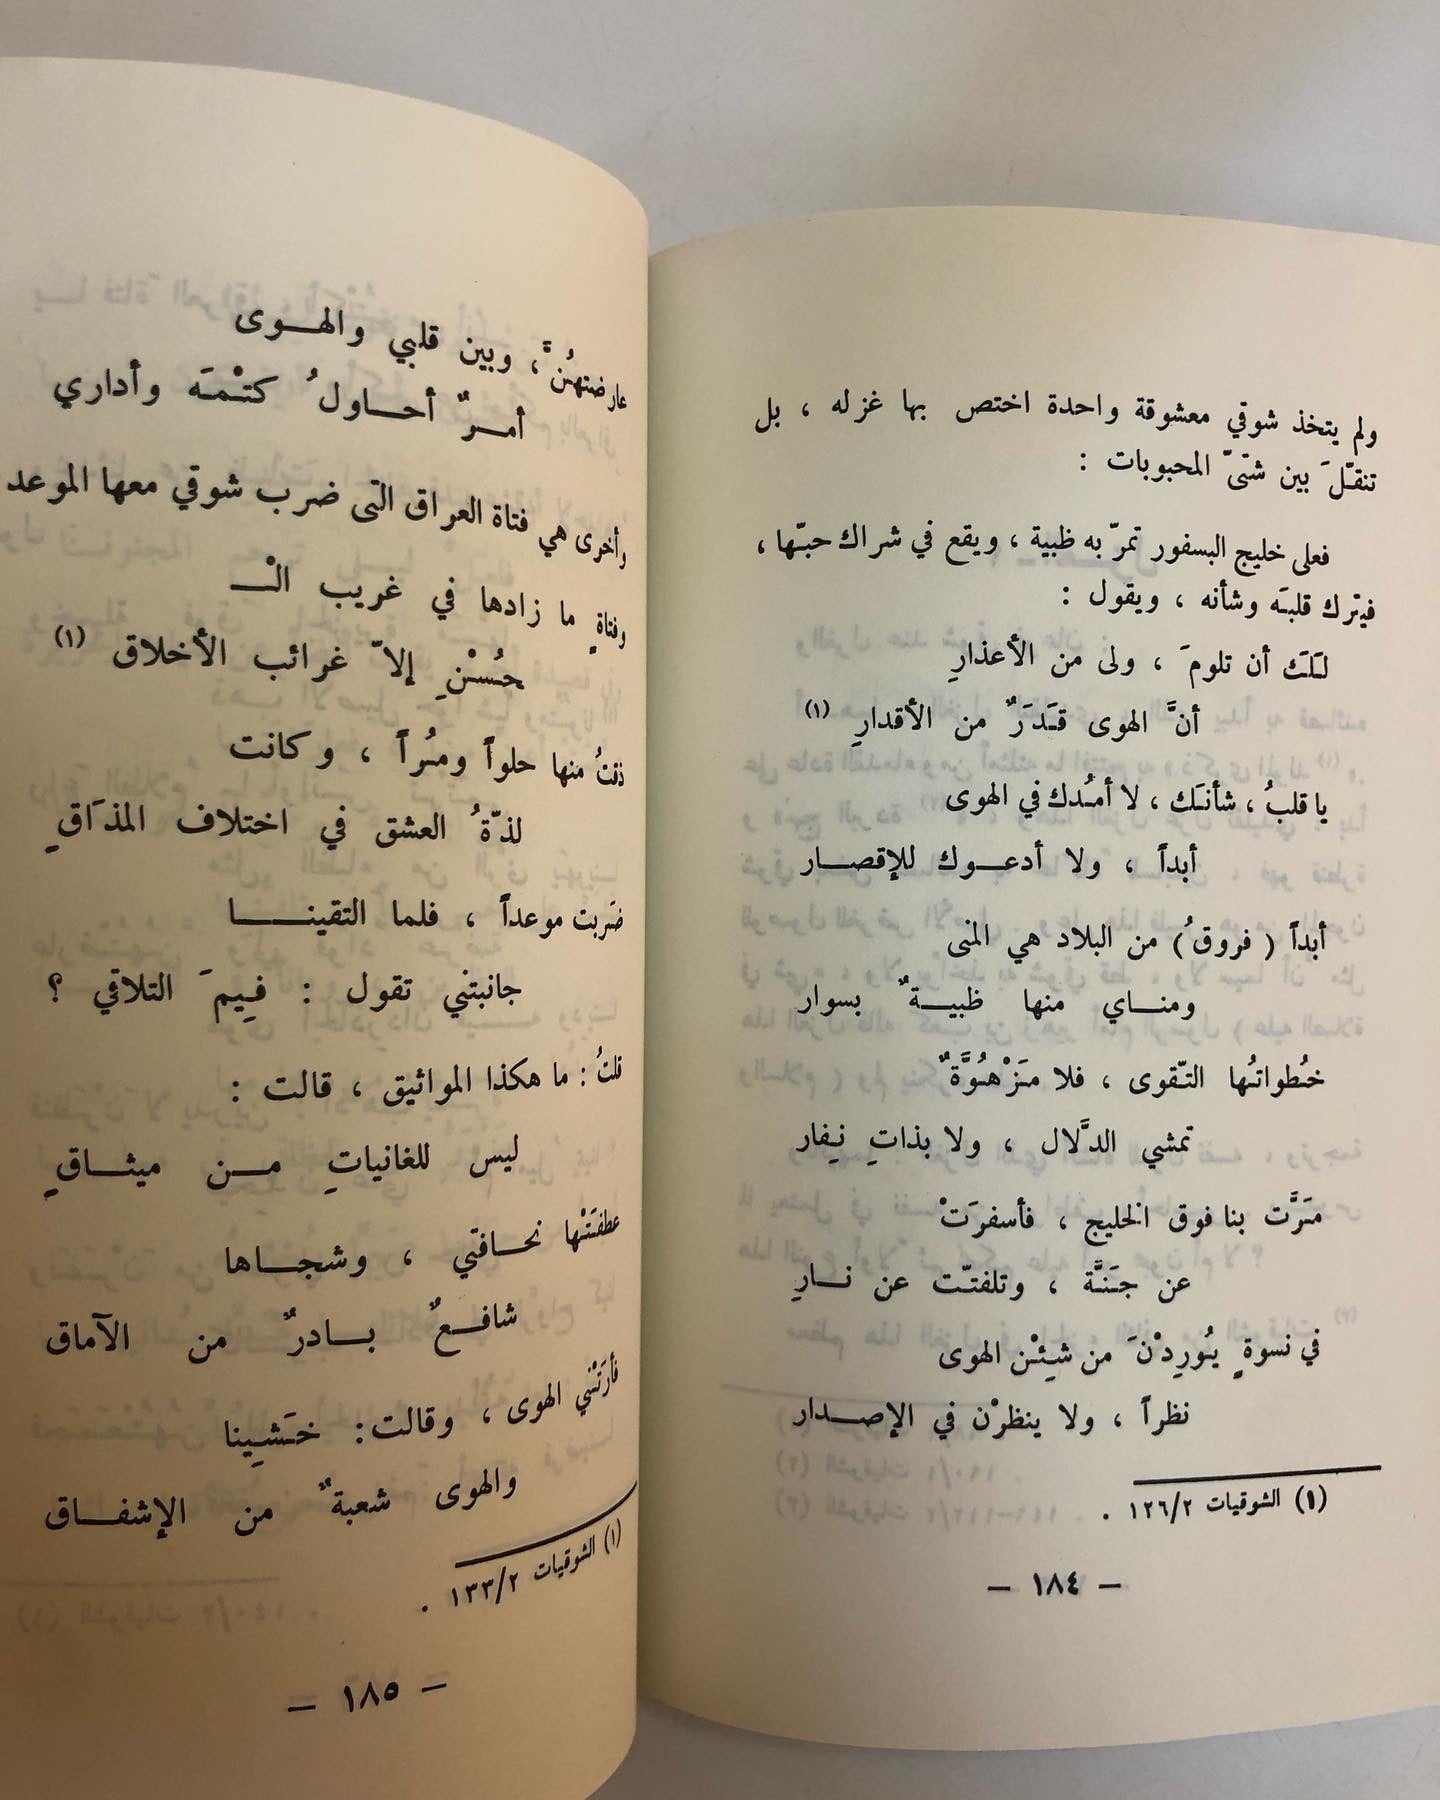 ولم يتخذ شوقي معشوقة واحدة اختص بها غزله ، بل
تنقّلَ بين شتىّ المحبوبات :
فعلى خليج البسفور تمرّ به ظبية ، ويقع في شراك حبّها ،
فيترك قلبَه وشأنه ، ويقول :
لَكَ أن تلومَ ، ولى من الأعذارِ
أنَّ الهوى قَدَرٌ من الأقدارِ (١)
يا قلبُ ، شأنَك ، لا أمُدك في الهوى
أبداً ، ولا أدعوك للإقصار
أبداً ( فروقُ ) من البلاد هي المنى
ومناي منها ظبيةٌ بسوار
خُطواتُها التّقوى ، فلا مَزْهُوَّةٌ
تمشي الدَّلال ، ولا بذاتِ نِفار
مَرَّت بنا فوق الخليج ، فأسفرَتْ
عن جَنَّة ، وتلفتّت عن نارِ
في نسوةٍ يُورِدْنَ من شِئْن الهوى
نظراً ، ولا ينظرْن في الإصدار
(١) الشوقيات ١٢٦/٢ .
– ١٨٤ –
عارضتهُنَّ ، وبين قلبي والهوى
أمرٌ أحاولُ كتْمَه وأداري
وأخرى هي فتاة العراق التى ضرب شوقي معها الموعد
وفتاةٍ ما زادها في غريب الْـ
حُسْنِ إلاّ غرائب الأخلاق (١)
ذقتُ منها حلواً ومُراً ، وكانت
لذّةُ العشق في اختلاف المذَاقِ
ضَربت موعداً ، فلما التقينا
جانبتني تقول : فِيمَ التلاقي ؟
قلتُ : ما هكذا المواثيق ، قالت :
ليس للغانياتِ من ميثاقِ
عطفَتْها نحافتي ، وشجاها
شافعٌ بادرٌ من الآماق
فأرَتْني الهوى ، وقالت: خَشِينا
والهوى شعبةٌ من الإشفاق
(١) الشوقيات ١٣٣/٢ .
– ١٨٥ –